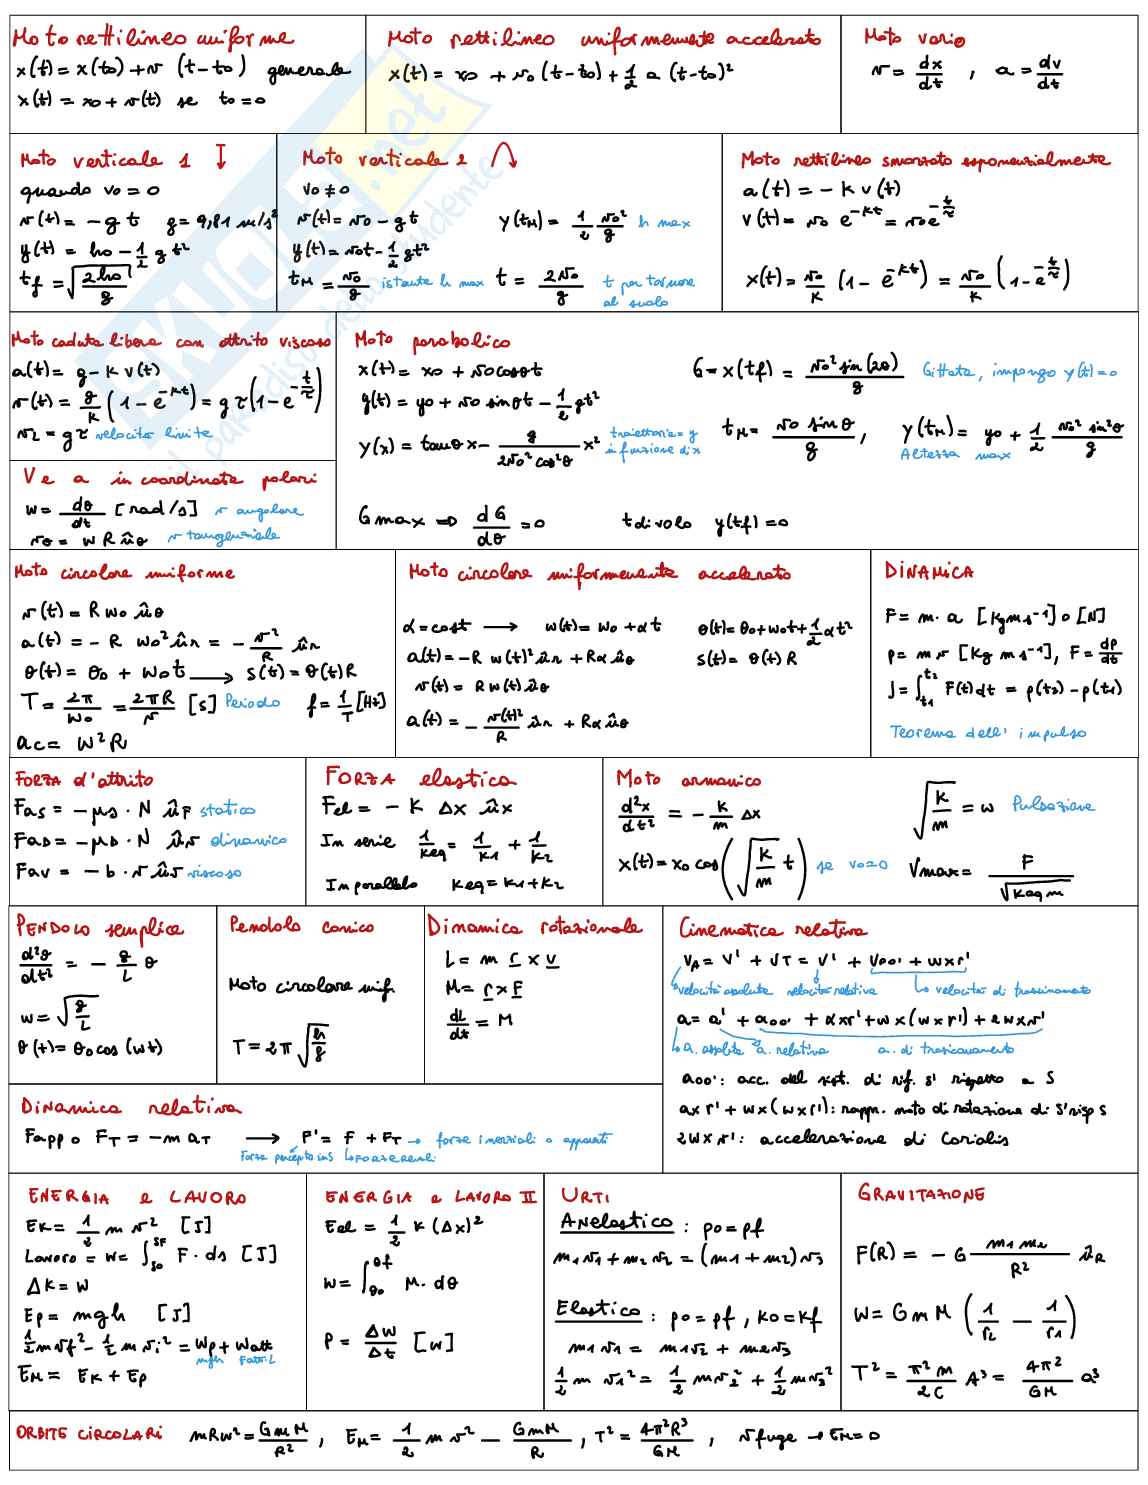 Moto rettilineo uniforme
x(t) = x(t0) + v (t-t0) generale
x(t) = x0 + v(t) se t0 = 0
Moto rettilineo uniformemente accelerato
x(t) = x0 + v0 (t-t0) + 1/2 a (t-t0)²
Moto vario
v = dx/dt , a = dv/dt
Moto verticale 1 ↓
quando v0 = 0
v(t) = -g t g = 9,81 m/s²
y(t) = h0 - 1/2 g t²
tf = √(2h0/g)
Moto verticale 2
v0 ≠ 0
v(t) = v0 - gt
y(t) = v0t - 1/2 gt²
tM = v0/g istante h max
y(tM) = 1/2 v0²/g h max
t = 2v0/g t per tornare al suolo
Moto rettilineo smorzato esponenzialmente
a(t) = -K v(t)
v(t) = v0 e^-Kt = v0 e^-t/τ
x(t) = v0/K (1 - e^-Kt) = v0/K (1 - e^-t/τ)
Moto caduta libera con attrito viscoso
a(t) = g - K v(t)
v(t) = g/K (1 - e^-Kt) = gτ(1 - e^-t/τ)
vL = gτ velocità limite
Moto parabolico
x(t) = x0 + v0cosθt
y(t) = y0 + v0 sinθt - 1/2 gt²
y(x) = tanθx - g/(2v0² cos²θ) x² traiettoria = y in funzione di x
Gmax => dG/dθ = 0 t di volo y(tf) = 0
G = x(tf) = v0² sin(2θ)/g Gittata, impongo y(t) = 0
tM = v0 sinθ/g , y(tM) = y0 + 1/2 v0² sin²θ/g
Altezza max
V e a in coordinate polari
w = dθ/dt [rad/s] v angolare
vθ = w R ûθ v tangenziale
Moto circolare uniforme
v(t) = R w0 ûθ
a(t) = -R w0² ûr = - v²/R ûr
θ(t) = θ0 + w0t → s(t) = θ(t)R
T = 2π/w0 = 2πR/v [s] Periodo f = 1/T [Hz]
ac = w²R
Moto circolare uniformemente accelerato
α = cost → w(t) = w0 + αt θ(t) = θ0 + w0t + 1/2 αt²
a(t) = -R w(t)² ûr + Rα ûθ s(t) = θ(t) R
v(t) = R w(t) ûθ
a(t) = - v(t)²/R ûr + Rα ûθ
DINAMICA
F = m · a [Kg m s⁻¹] o [N]
p = m v [Kg m s⁻¹], F = dp/dt
J = ∫t1 t2 F(t)dt = p(t2) - p(t1)
Teorema dell' impulso
FORZA d'attrito
Fas = -μs · N ûF statico
Fad = -μd · N ûv dinamico
Fav = -b · v ûv viscoso
FORZA elastica
Fel = -K Δx ûx
In serie 1/Keq = 1/K1 + 1/K2
In parallelo Keq = K1 + K2
Moto armonico
d²x/dt² = - K/m Δx
x(t) = x0 cos(√(K/m) t) se v0 = 0
√(K/m) = w Pulsazione
Vmax = F/√(Keq m)
PENDOLO semplice
d²θ/dt² = - g/L θ
w = √(g/L)
θ(t) = θ0 cos(wt)
Pendolo conico
Moto circolare unif.
T = 2π √(h/g)
Dinamica rotazionale
L = m r x v
M = r x F
dL/dt = M
Cinematica relativa
VA = V' + VT = V' + V00' + w x r'
velocità assoluta velocità relativa velocità di trascinamento
a = a' + a00' + α x r' + w x (w x r') + 2w x v'
a. assoluta a. relativa a. di trascinamento
a00' : acc. del sist. di rif. s' rispetto a S
α x r' + w x (w x r') : rappr. moto di rotazione di S' risp S
2w x v' : accelerazione di Coriolis
Dinamica relativa
Fapp o FT = -m aT → F' = F + FT → forze inerziali o apparenti
Forza percepita in S' Forze reali
ENERGIA e LAVORO
EK = 1/2 m v² [J]
Lavoro = W = ∫s0 sF F · ds [J]
ΔK = W
Ep = mgh [J]
1/2 m vf² - 1/2 m vi² = Wp + Watt
mgh Fatt·L
EM = EK + Ep
ENERGIA e LAVORO II
Eel = 1/2 K (Δx)²
W = ∫θ0 θf M · dθ
P = ΔW/Δt [W]
URTI
Anelastico : p0 = pf
m1v1 + m2v2 = (m1 + m2) v3
Elastico : p0 = pf , K0 = Kf
m1v1 = m1v2 + m2v3
1/2 m v1² = 1/2 mv2² + 1/2 mv3²
GRAVITAZIONE
F(R) = -G m1 m2/R² ûR
W = G m M (1/r2 - 1/r1)
T² = π² m/2C A³ = 4π²/GM a³
ORBITE CIRCOLARI mRw² = GmM/R² , EM = 1/2 m v² - GmM/R , T² = 4π²R³/GM , vfuga → EM = 0
SKUOLA.net
il paradiso dello studente